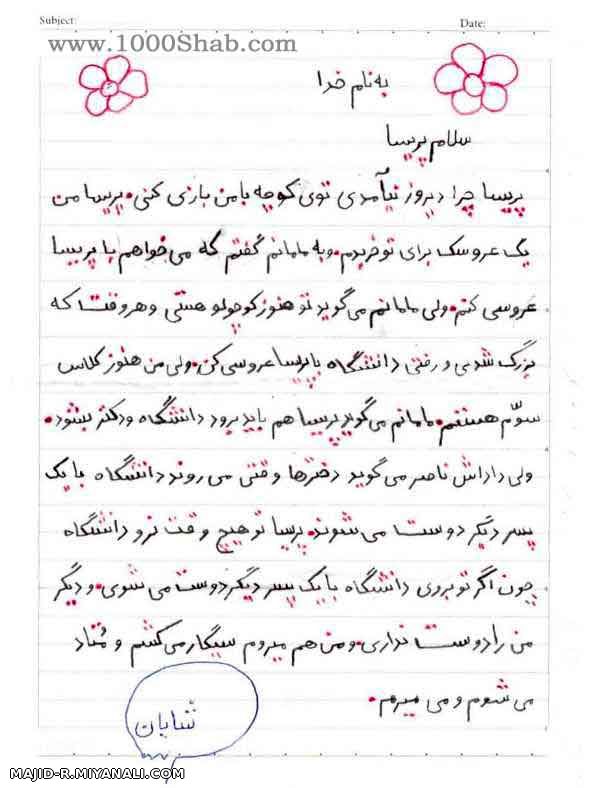 Subject:
Date:
www.1000Shab.com
به نام خدا
سلام پریسا
پریسا چرا دیروز نیآمدی توی کوچه با من بازی کنی. پریسا من
یک عروسک برای تو خریدم. و به مامانم گفتم که می خواهم با پریسا
عروسی کنم. ولی مامانم می گوید تو هنوز کوچولو هستی و هر وقت که
بزرگ شدی و رفتی دانشگاه با پریسا عروسی کن. ولی من هنوز کلاس
سوّم هستم. مامانم می گوید پریسا هم باید برود دانشگاه و دکتر بشود.
ولی داداش ناصر می گوید دخترها وقتی می روند دانشگاه با یک
پسر دیگر دوست می شوند. پریسا تو هیچ وقت نرو دانشگاه
چون اگر تو بروی دانشگاه با یک پسر دیگر دوست می شوی. و دیگر
من را دوست نداری. و من هم میروم سیگار می کشم و مُتاد
می شوم و می میرم.
MAJID-R.MIYANALI.COM